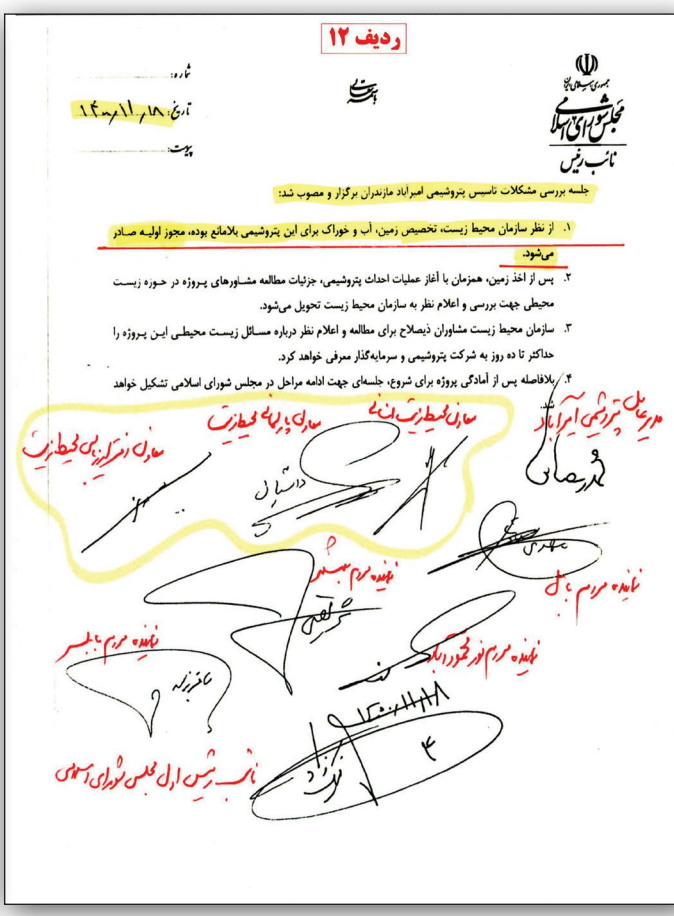 ردیف ۱۲
جمهوری اسلامی ایران
مجلس شورای اسلامی
نائب رئیس
باسمه تعالی
شماره:
تاریخ: ۱۴۰۰/۱۱/۱۸
پیوست:
جلسه بررسی مشکلات تاسیس پتروشیمی امیرآباد مازندران برگزار و مصوب شد:
۱. از نظر سازمان محیط زیست، تخصیص زمین، آب و خوراک برای این پتروشیمی بلامانع بوده، مجوز اولیه صادر
می‌شود.
۲. پس از اخذ زمین، همزمان با آغاز عملیات احداث پتروشیمی، جزئیات مطالعه مشاورهای پروژه در حوزه زیست
محیطی جهت بررسی و اعلام نظر به سازمان محیط زیست تحویل می‌شود.
۳. سازمان محیط زیست مشاوران ذیصلاح برای مطالعه و اعلام نظر درباره مسائل زیست محیطی این پروژه را
حداکثر تا ده روز به شرکت پتروشیمی و سرمایه‌گذار معرفی خواهد کرد.
۴. بلافاصله پس از آمادگی پروژه برای شروع، جلسه‌ای جهت ادامه مراحل در مجلس شورای اسلامی تشکیل خواهد
شد.
مدیرعامل پتروشیمی امیرآباد
معاون محیط زیست انسانی
معاون پارلمانی محیط زیست
معاون دفتر ارزیابی محیط زیست
نماینده مردم بابل
نماینده مردم بهشهر
نماینده مردم نور محمودآباد
نماینده مردم بابلسر
۱۴۰۰/۱۱/۱۸
نائب رئیس اول مجلس شورای اسلامی